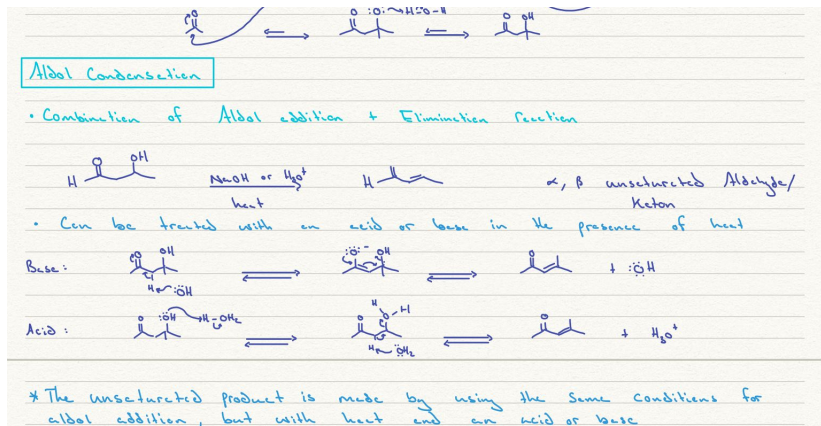 O :O: H-O-H O OH
Aldol Condensation
• Combination of Aldol addition + Elimination reaction
O OH
H NaOH or H₃O⁺ H α, β unsaturated Aldehyde/
heat Keton
• Can be treated with an acid or base in the presence of heat
Base: O OH :O:⁻ OH O + :ÖH
H :ÖH
Acid: O :OH H-OH₂ O H O-H O + H₃O⁺
H :OH₂
* The unsaturated product is made by using the same conditions for
aldol addition, but with heat and an acid or base